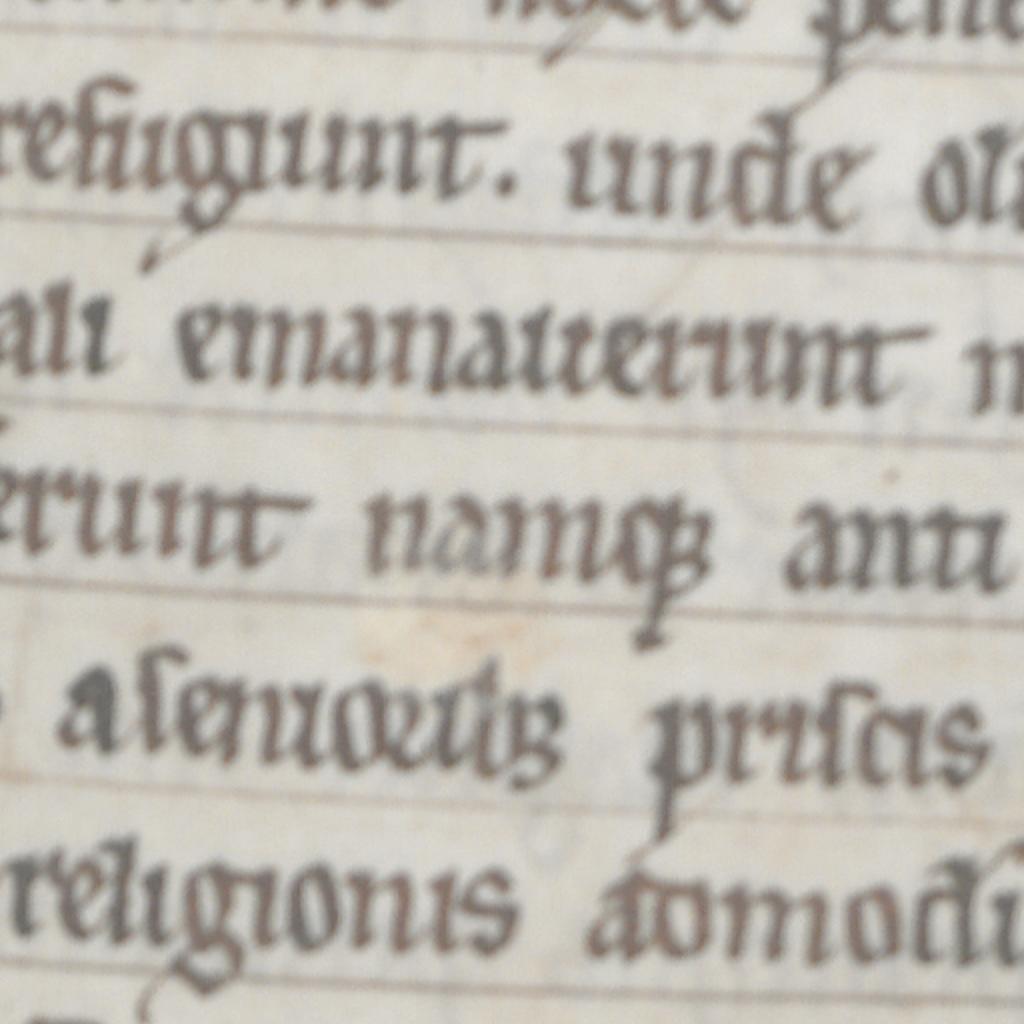 refugiunt. unde oli
ali emanauerunt n
erunt namqꝫ anti
a senioribꝫ priscis
religionis admodū